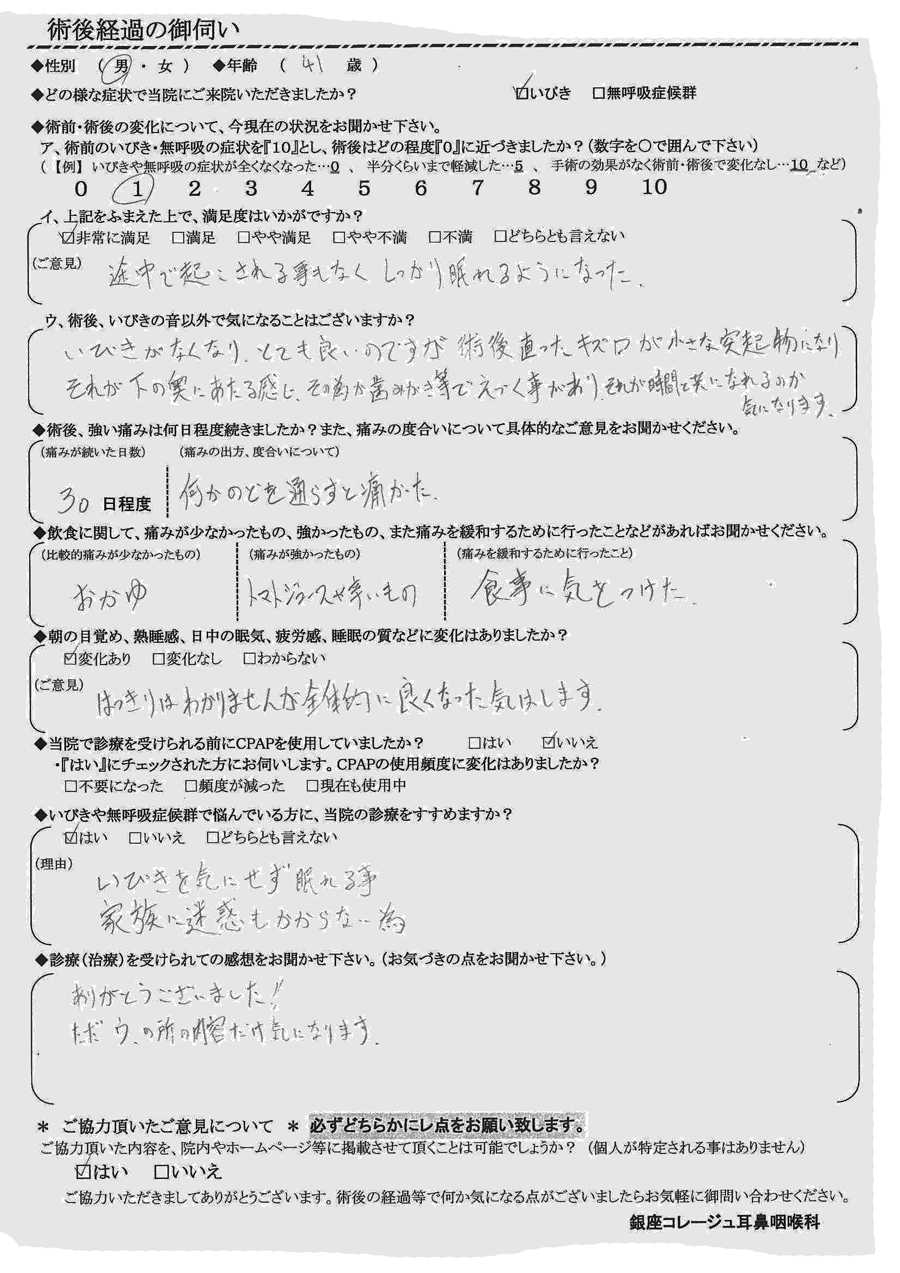 術後経過の御伺い
◆性別 （ 男 ・ 女 ） ◆年齢 （ 41 歳 ）
◆どの様な症状で当院にご来院いただきましたか？ ☑いびき □無呼吸症候群
◆術前・術後の変化について、今現在の状況をお聞かせ下さい。
ア、術前のいびき・無呼吸の症状を『10』とし、術後はどの程度『0』に近づきましたか？（数字を〇で囲んで下さい）
（【例】いびきや無呼吸の症状が全くなくなった…0 、 半分くらいまで軽減した…5 、 手術の効果がなく術前・術後で変化なし…10 など）
0 1 2 3 4 5 6 7 8 9 10
イ、上記をふまえた上で、満足度はいかがですか？
☑非常に満足 □満足 □やや満足 □やや不満 □不満 □どちらとも言えない
(ご意見) 途中で起こされる事もなく しっかり眠れるようになった.
ウ、術後、いびきの音以外で気になることはございますか？
いびきがなくなり、とても良いのですが 術後直ったキズ口が小さな突起物になり
それが下の奥にあたる感じ、その為か歯みがき等でえづく事があり、それが時間と共になれるのか
気になります.
◆術後、強い痛みは何日程度続きましたか？また、痛みの度合いについて具体的なご意見をお聞かせください。
(痛みが続いた日数) (痛みの出方、度合いについて)
30 日程度 何かのどを通らすと痛かった.
◆飲食に関して、痛みが少なかったもの、強かったもの、また痛みを緩和するために行ったことなどがあればお聞かせください。
(比較的痛みが少なかったもの) (痛みが強かったもの) (痛みを緩和するために行ったこと)
おかゆ トマトジュースや辛いもの 食事に気をつけた.
◆朝の目覚め、熟睡感、日中の眠気、疲労感、睡眠の質などに変化はありましたか？
☑変化あり □変化なし □わからない
(ご意見) はっきりはわかりませんが全体的に良くなった気はします.
◆当院で診療を受けられる前にCPAPを使用していましたか？ □はい ☑いいえ
・『はい』にチェックされた方にお伺いします。CPAPの使用頻度に変化はありましたか？
□不要になった □頻度が減った □現在も使用中
◆いびきや無呼吸症候群で悩んでいる方に、当院の診療をすすめますか？
☑はい □いいえ □どちらとも言えない
(理由)
いびきを気にせず眠れる事
家族に迷惑もかからない為
◆診療（治療）を受けられての感想をお聞かせ下さい。（お気づきの点をお聞かせ下さい。）
ありがとうございました!!
ただウ、の所の内容だけ気になります.
＊ ご協力頂いたご意見について ＊ 必ずどちらかにレ点をお願い致します。
ご協力頂いた内容を、院内やホームページ等に掲載させて頂くことは可能でしょうか？ （個人が特定される事はありません）
☑はい □いいえ
ご協力いただきましてありがとうございます。術後の経過等で何か気になる点がございましたらお気軽に御問い合わせください。
銀座コレージュ耳鼻咽喉科